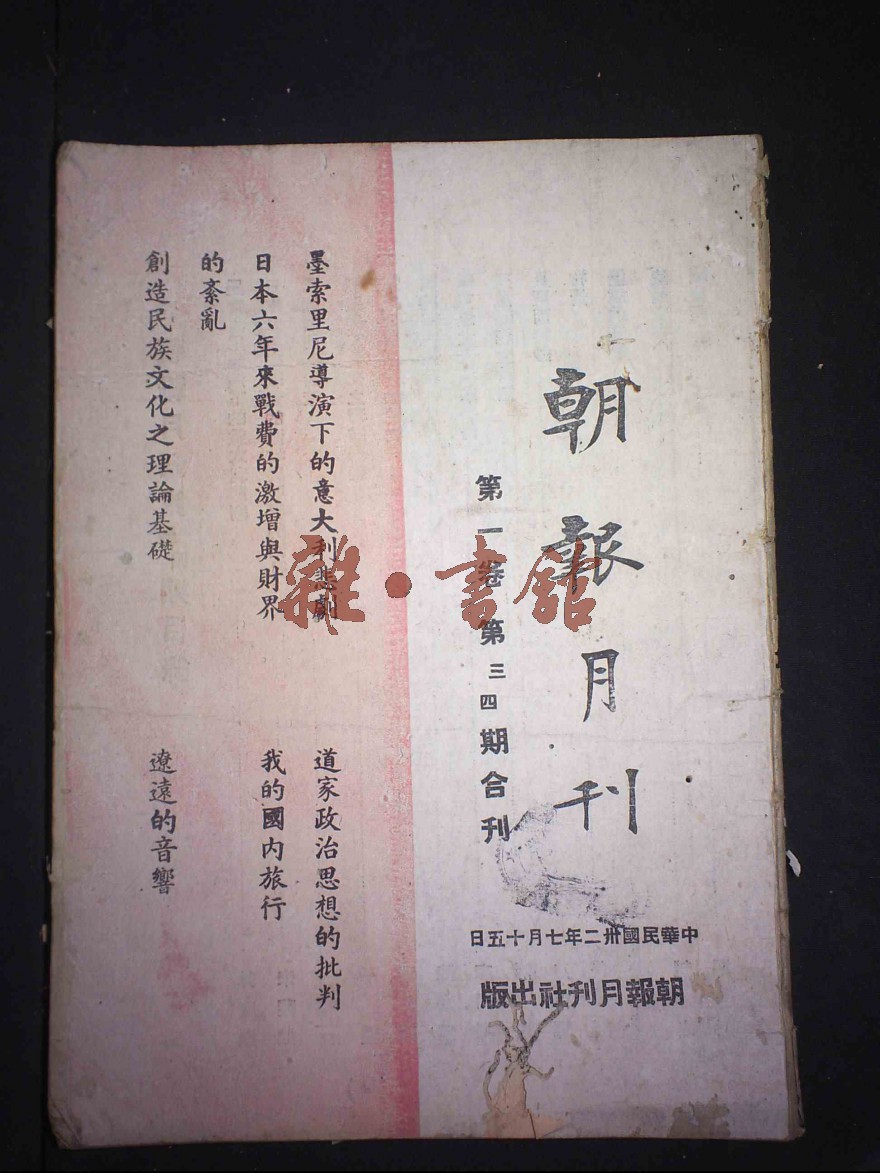 朝報月刊
第一卷 第三四期合刊
中華民國卅二年七月十五日
朝報月刊社出版
墨索里尼導演下的意大利悲劇
日本六年來戰費的激增與財界
的紊亂
創造民族文化之理論基礎
道家政治思想的批判
我的國內旅行
遼遠的音響
雜·書館